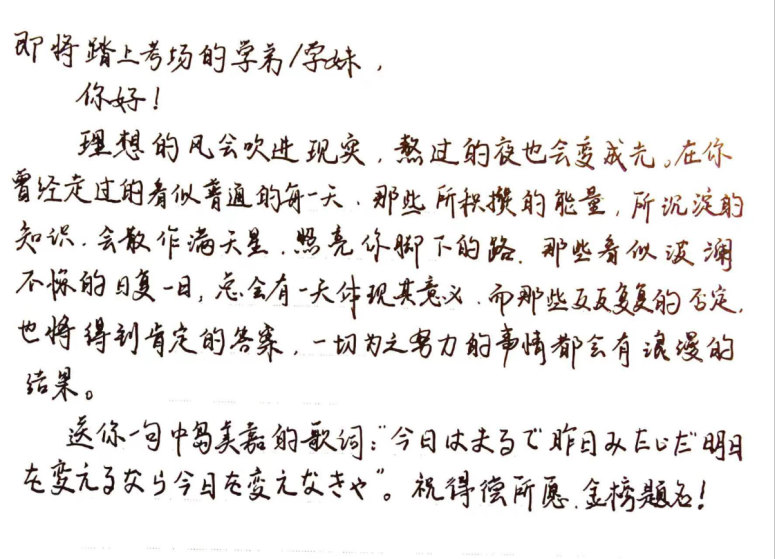 即将踏上考场的学弟/学妹，
你好！
理想的风会吹进现实，熬过的夜也会变成光。在你
曾经走过的看似普通的每一天，那些所积攒的能量，所沉淀的
知识，会散作满天星，照亮你脚下的路，那些看似波澜
不惊的日复一日，总会有一天体现其意义，而那些反反复复的否定，
也将得到肯定的答案，一切为之努力的事情都会有浪漫的
结果。
送你一句中岛美嘉的歌词：“今日はまるで昨日みたいだ明日
を変えるなら今日を変えなきゃ”。祝得偿所愿，金榜题名！